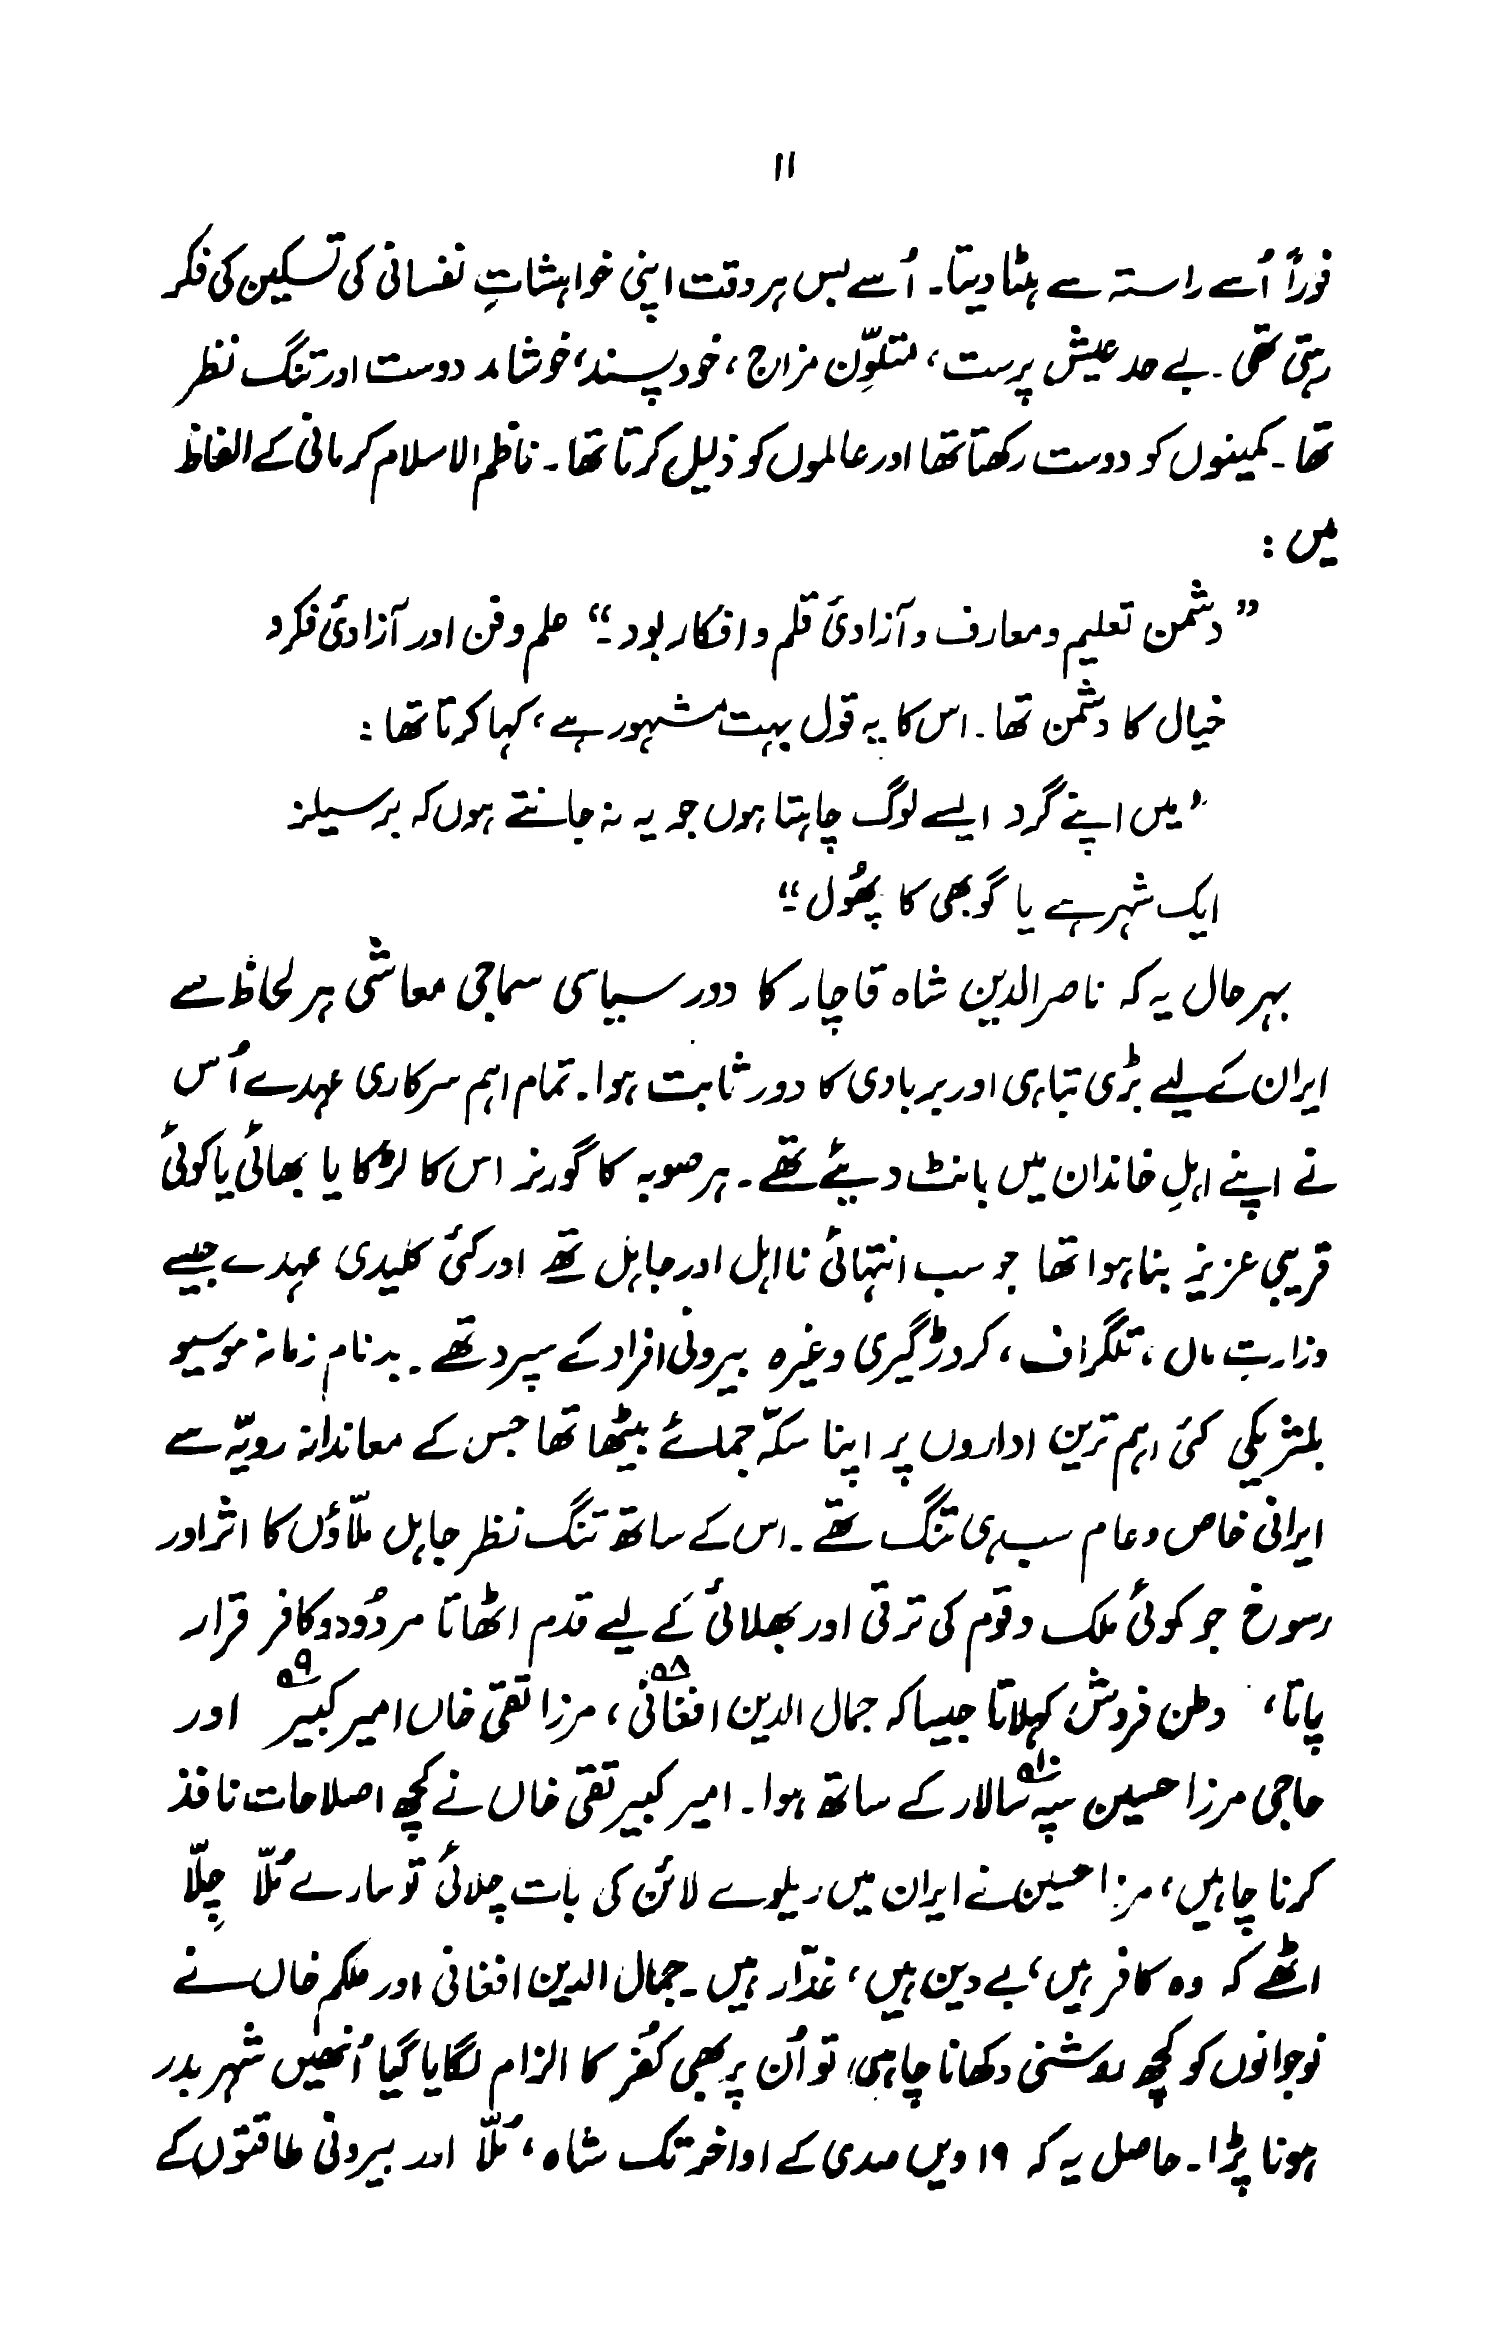 ۱۱
فوراً اُسے راستہ سے ہٹا دیتا۔ اُسے بس ہر وقت اپنی خواہشاتِ نفسانی کی تسکین کی فکر
رہتی تھی۔ بے حد عیش پرست، متلوّن مزاج، خود پسند، خوشامد دوست اور تنگ نظر
تھا۔ کمینوں کو دوست رکھتا تھا اور عالموں کو ذلیل کرتا تھا۔ ناظم الاسلام کرمانی کے الفاظ
میں :
”دشمن تعلیم و معارف و آزادیٔ قلم و افکار بود۔“ علم و فن اور آزادیٔ فکر و
خیال کا دشمن تھا۔ اس کا یہ قول بہت مشہور ہے، کہا کرتا تھا :
”میں اپنے گرد ایسے لوگ چاہتا ہوں جو یہ نہ جانتے ہوں کہ برسیلز
ایک شہر ہے یا گوبھی کا پھُول۔“
بہرحال یہ کہ ناصرالدین شاہ قاچار کا دور سیاسی سماجی معاشی ہر لحاظ سے
ایران کے لیے بڑی تباہی اور بربادی کا دور ثابت ہوا۔ تمام اہم سرکاری عہدے اُس
نے اپنے اہلِ خاندان میں بانٹ دیئے تھے۔ ہر صوبہ کا گورنر اس کا لڑکا یا بھائی یا کوئی
قریبی عزیز بنا ہوا تھا جو سب انتہائی نااہل اور جاہل تھے اور کئی کلیدی عہدے جیسے
وزارتِ مال، تلگراف، کروڑگیری وغیرہ بیرونی افراد کے سپرد تھے۔ بدنام زمانہ موسیو
بلشریکی کئی اہم ترین اداروں پر اپنا سکّہ جمائے بیٹھا تھا جس کے معاندانہ رویّہ سے
ایرانی خاص و عام سب ہی تنگ تھے۔ اس کے ساتھ تنگ نظر جاہل ملّاؤں کا اثر اور
رسوخ جو کوئی ملک و قوم کی ترقی اور بھلائی کے لیے قدم اٹھاتا مردُود و کافر قرار
پاتا، وطن فروش کہلاتا جیسا کہ جمال الدین افغانی۸ھ، مرزا تقی خاں امیر کبیر۹ھ اور
حاجی مرزا حسین سپہ سالار۱۰ھ کے ساتھ ہوا۔ امیر کبیر تقی خاں نے کچھ اصلاحات نافذ
کرنا چاہیں، مرزا حسین نے ایران میں ریلوے لائن کی بات چلائی تو سارے مُلّا چِلّا
اٹھے کہ وہ کافر ہیں، بے دین ہیں، غدّار ہیں۔ جمال الدین افغانی اور ملکم خاں نے
نوجوانوں کو کچھ روشنی دکھانا چاہی، تو اُن پر بھی کُفر کا الزام لگایا گیا اُنھیں شہر بدر
ہونا پڑا۔ حاصل یہ کہ ۱۹ ویں صدی کے اواخر تک شاہ، مُلّا اور بیرونی طاقتوں کے